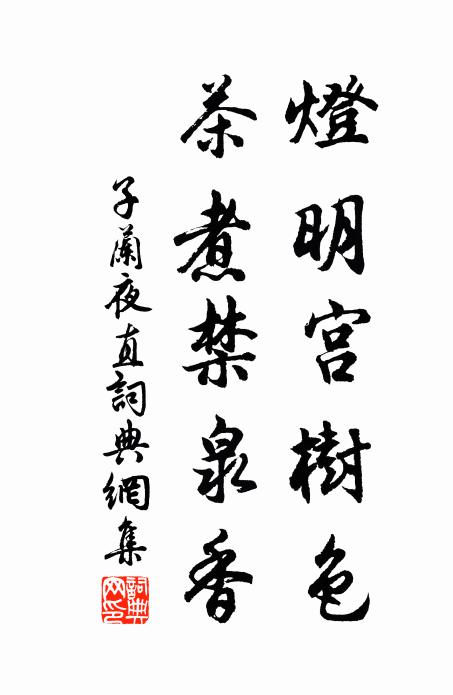 燈明宮樹色
茶煮禁泉香
子蘭夜直詞典網集
詞典网印